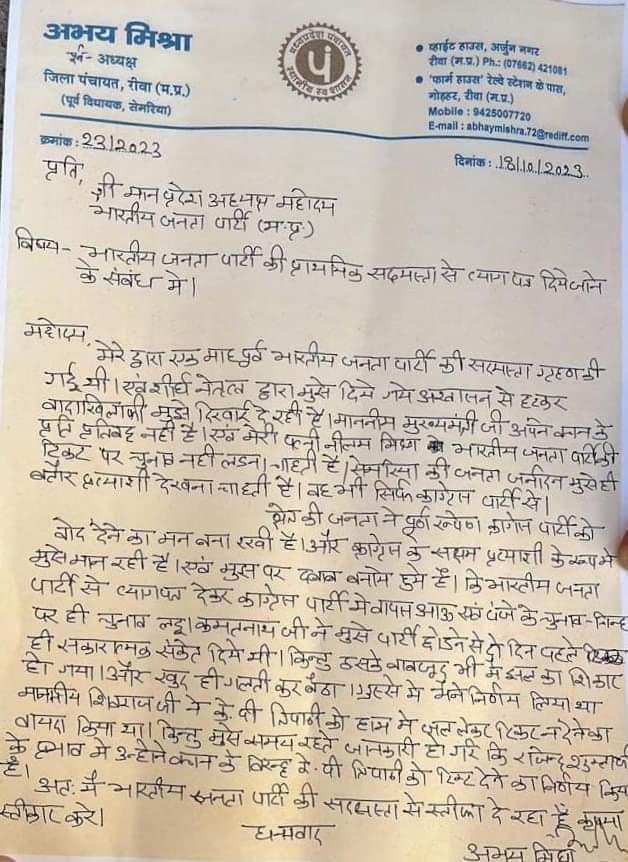 अभय मिश्रा
पूर्व- अध्यक्ष
जिला पंचायत, रीवा (म.प्र.)
(पूर्व विधायक, सेमरिया)
मध्यप्रदेश पंचायत
पं
स्थानीय स्व शासन
● व्हाईट हाउस, अर्जुन नगर
रीवा (म.प्र.) Ph.: (07662) 421081
● 'फार्म हाउस' रेल्वे स्टेशन के पास,
गोड़हर, रीवा (म.प्र.)
Mobile : 9425007720
E-mail : abhaymishra.72@rediff.com
क्रमांक : 23/2023
दिनांक : 18/10/2023
प्रति,
श्री मान प्रदेश अध्यक्ष महोदय
भारतीय जनता पार्टी (म.प्र.)
विषय - भारतीय जनता पार्टी की प्राथमिक सदस्यता से त्याग पत्र दिये जाने
के संबंध मे।
महोदय,
मेरे द्वारा एक माह पूर्व भारतीय जनता पार्टी की सदस्यता ग्रहण की
गई थी। एवं शीर्ष नेतृत्व द्वारा मुझे दिये गये आश्वासन से हटकर
वादाखिलाफी मुझे दिखाई दे रही है। माननीय मुख्यमंत्री जी अपने कथन के
प्रति प्रतिबद्ध नही है। एवं मेरी पत्नी नीलम मिश्रा भारतीय जनता पार्टी की
टिकट पर चुनाव नही लडना चाहती है। सेमरिया की जनता जनार्दन मुझे ही
बतौर प्रत्याशी देखना चाहती है। वह भी सिर्फ कांग्रेस पार्टी से।
क्षेत्र की जनता ने पूर्ण रूपेण कांग्रेस पार्टी को
वोट देने का मन बना रखी है। और कांग्रेस के सक्षम प्रत्याशी के रूप मे
मुझे मान रही है। एवं मुझ पर दबाव बनाये हुये है। कि भारतीय जनता
पार्टी से त्यागपत्र देकर कांग्रेस पार्टी मे वापस आऊ एवं पंजे के चुनाव-चिन्ह
पर ही चुनाव लडू। कमलनाथ जी ने मुझे पार्टी छोडने से दो दिन पहले
ही सकारात्मक संकेत दिये थे। किन्तु उसके बावजूद भी मै छल का शिकार
हो गया। और खुद ही गलती कर बैठा। गुस्से मे मैने निर्णय लिया था
माननीय शिवराज जी ने के. पी त्रिपाठी को हाथ मे लेकर टिकट न देने का
वायदा किया था। किन्तु मुझे समय रहते जानकारी हो गई कि राजेन्द्र शुक्ला
के प्रभाव मे उन्होने कथन के विरुद्ध के. पी त्रिपाठी को टिकट देने का निर्णय किया
है।
अतः मै भारतीय जनता पार्टी की सदस्यता से स्तीफा दे रहा हूँ कृपया
स्वीकार करे।
धन्यवाद
अभय मिश्रा